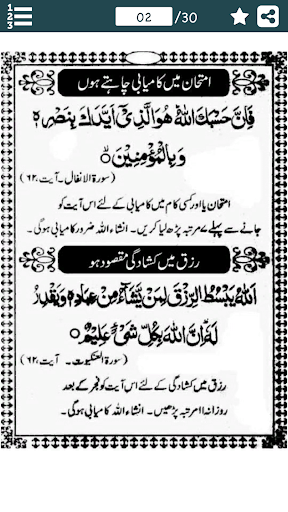 1
2
3
02 /30
امتحان میں کامیابی چاہتے ہوں
فَاِنَّ حَسْبَكَ اللّٰهُ هُوَ الَّذِیْۤ اَیَّدَكَ بِنَصْرِهٖ
وَبِالْمُؤْمِنِیْنَ
(سورۃ الانفال۔ آیت ۶۲)
امتحان یا اور کسی کام میں کامیابی کے لئے اس آیت کو
جانے سے پہلے ۷ مرتبہ پڑھ لیا کریں۔ انشاء اللہ ضرور کامیابی ہوگی۔
رزق میں کشادگی مقصود ہو
اَللّٰهُ یَبْسُطُ الرِّزْقَ لِمَنْ یَّشَآءُ مِنْ عِبَادِهٖ وَیَقْدِرُ
لَهٗ اِنَّ اللّٰهَ بِكُلِّ شَیْءٍ عَلِیْمٌ
(سورۃ العنکبوت۔ آیت ۶۲)
رزق میں کشادگی کے لئے اس آیت کو فجر کے بعد
روزانہ ۱۱ مرتبہ پڑھیں۔ انشاء اللہ کامیابی ہوگی۔